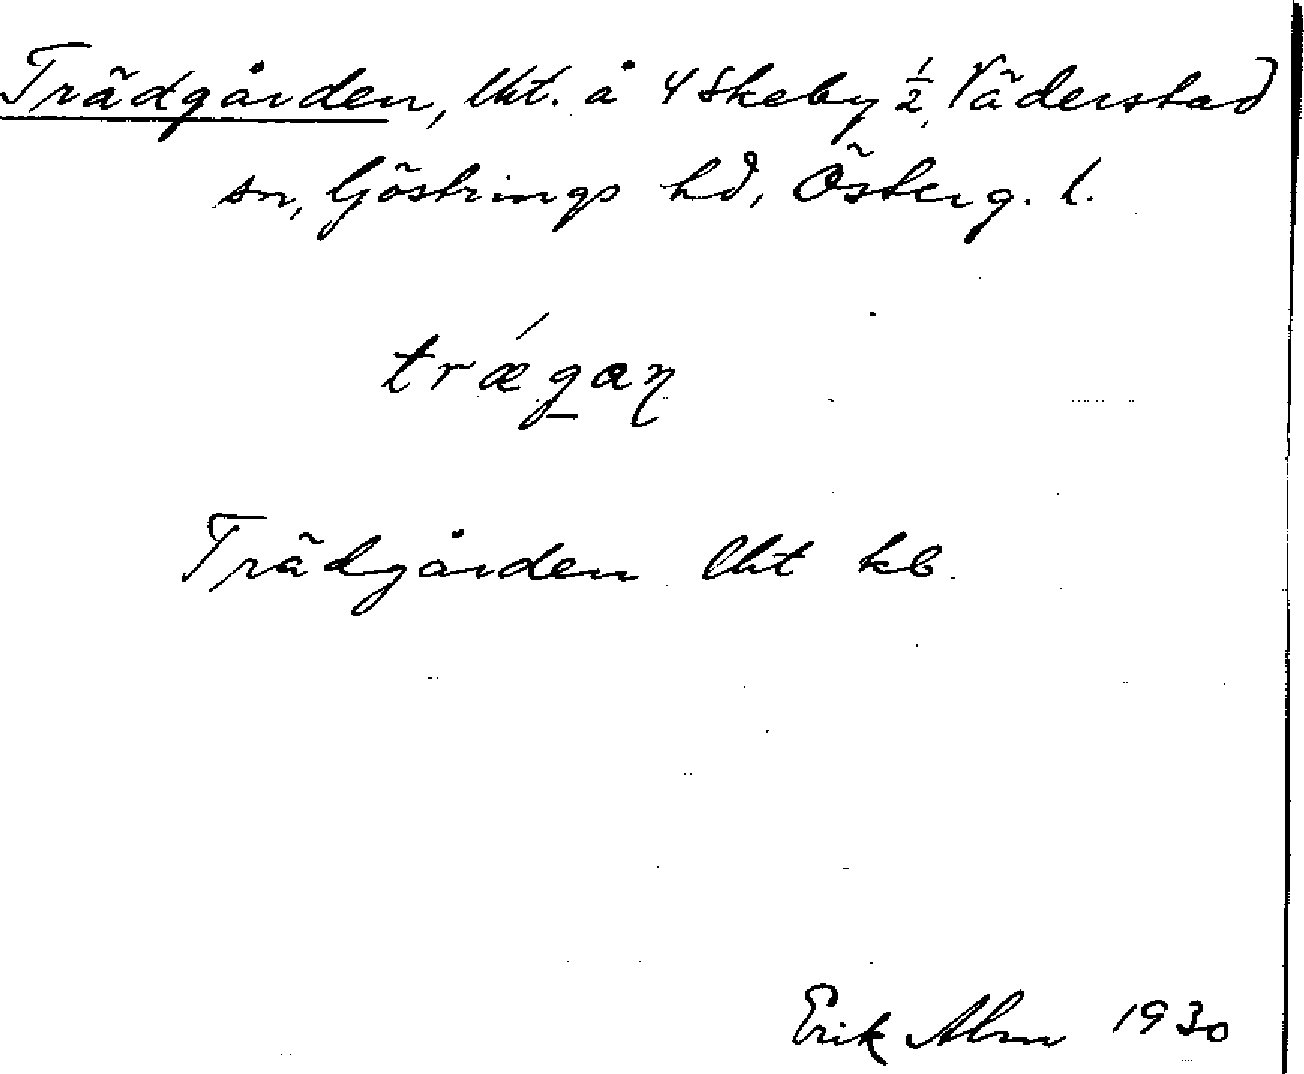 Trädgården, lht. å 4 Skeby ½, Väderstad
sn, Göstrings hd, Österg. l.
træ´gaɳ
Trädgården lht kb.
Erik Alm 1930